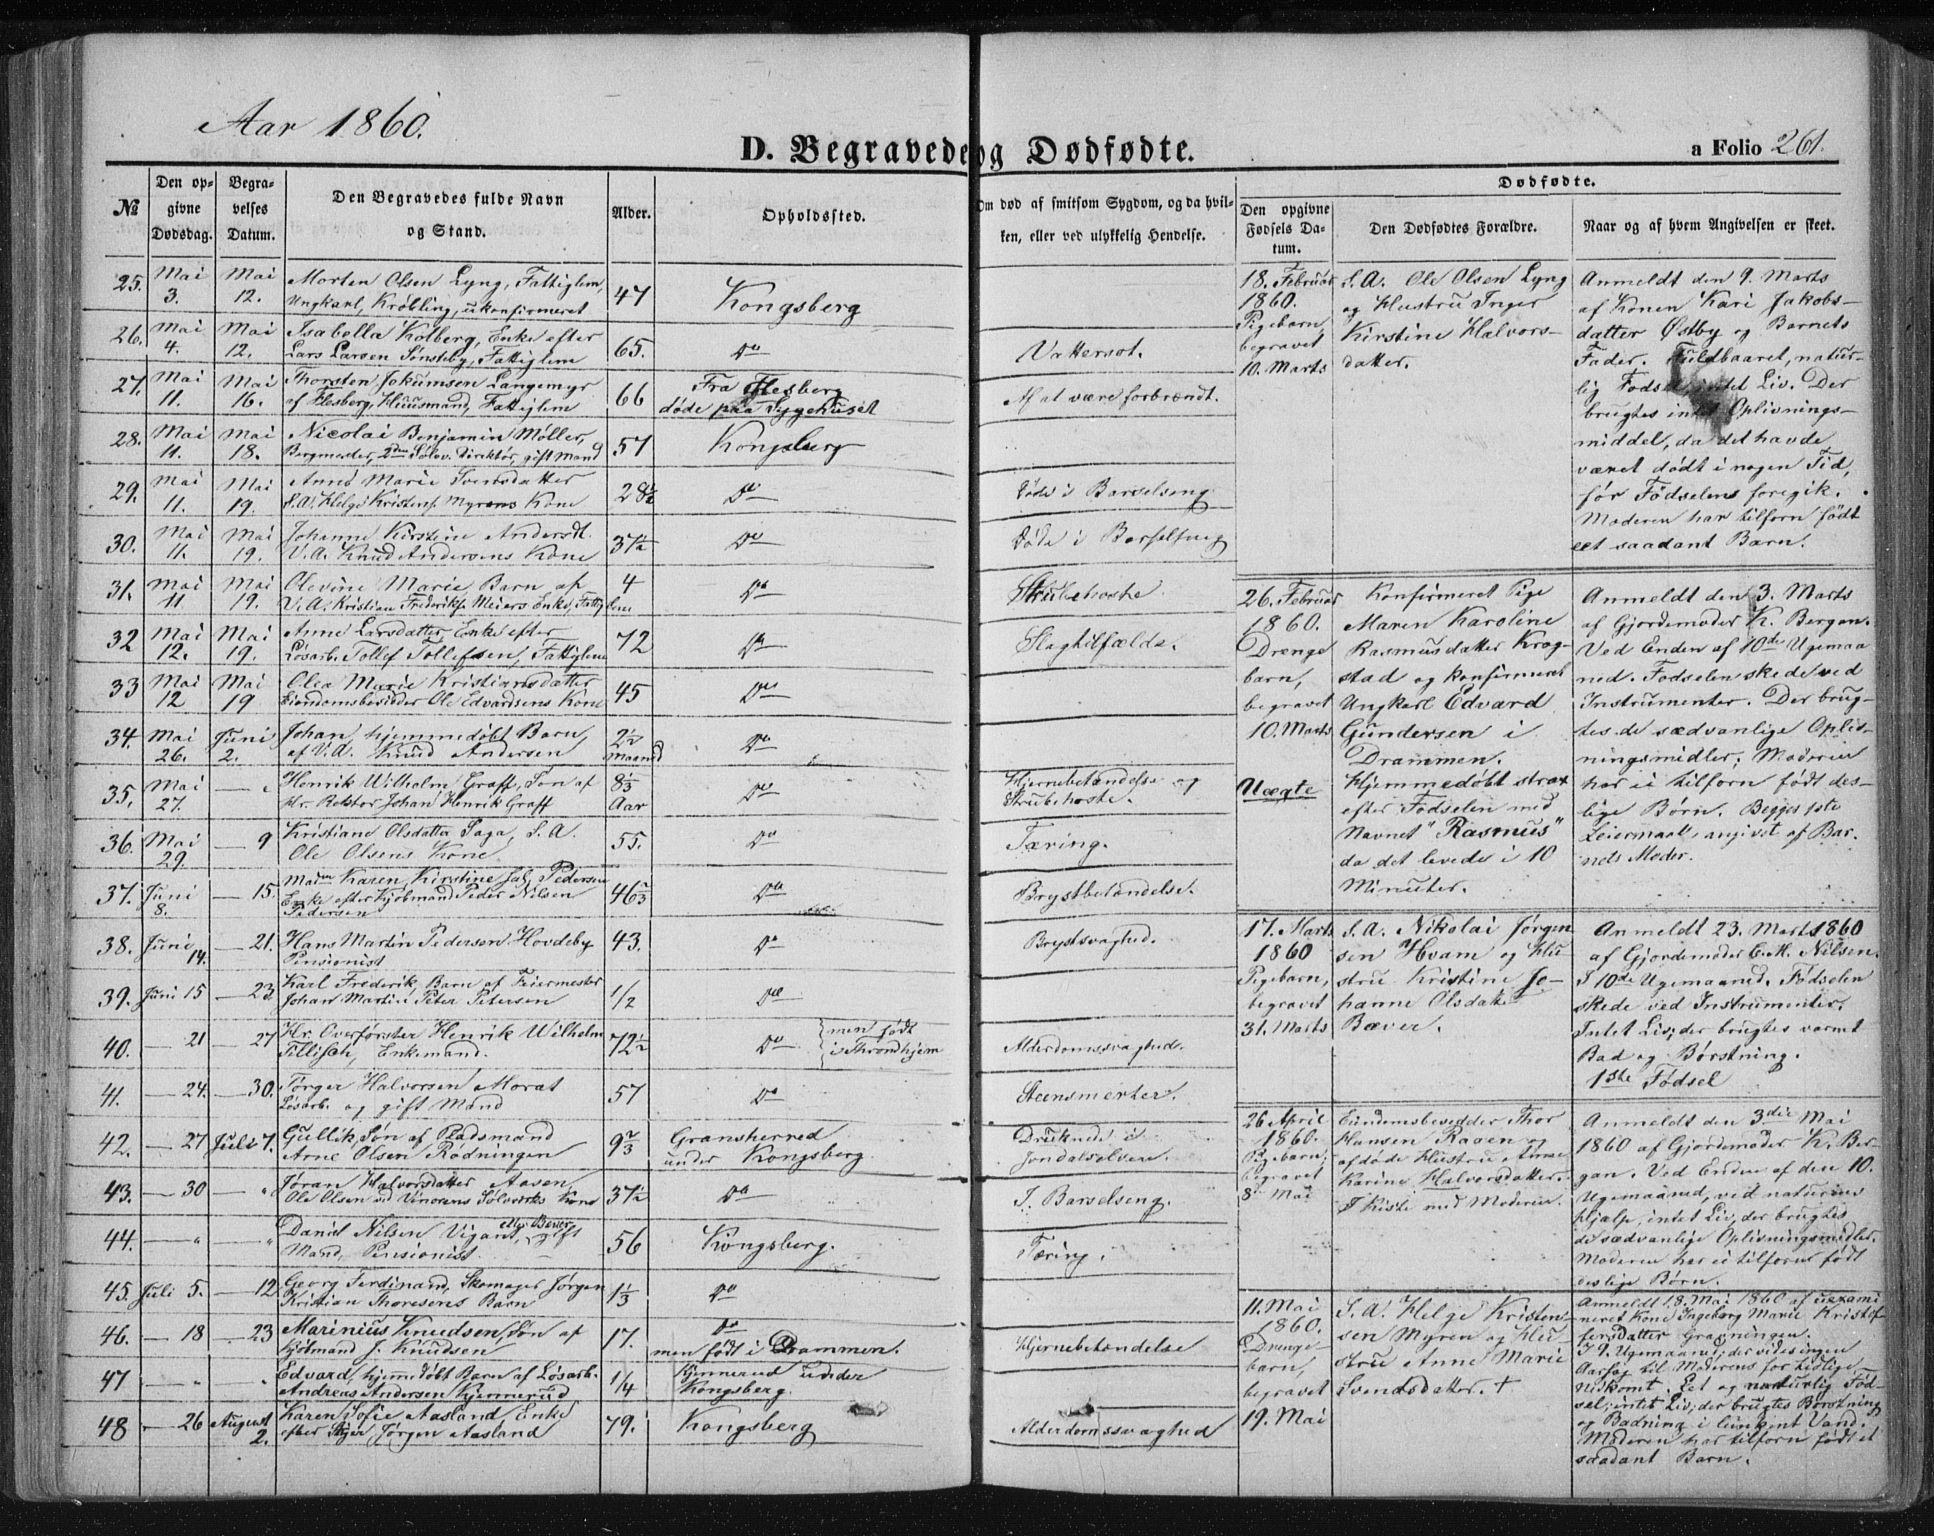 Aar 1860.
D. Begravede og Dødfødte.
a Folio 261.
No
Den opgivne Dødsdag.
Begravelses Datum.
Den Begravedes fulde Navn og Stand.
Alder.
Opholdssted.
Om død af smitsom Sygdom, og da hvilken, eller ved ulykkelig Hendelse.
Dødfødte.
Den opgivne Fødsels Datum.
Den Dødfødtes Forældre.
Naar og af hvem Angivelsen er skeet.
25. Mai 3. Mai 12. Morten Olsen Lyng, Fattiglem, 47 Kongsberg
Ungkarl, Krøbling, ukonfirmeret
26. Mai 4. Mai 12. Isabella Kolberg, Enke efter 65. Do Vattersot.
Lars Larsen Sønsteby, Fattiglem
27. Mai 11. Mai 16. Thorsten Jokumsen Langemyr 66 Fra Flesberg Af at være forbrændt.
af Flesberg, Huusmand, Fattiglem døde paa Sygehuset
28. Mai 11. Mai 18. Nicolai Benjamin Møller, 57 Kongsberg
Bergmester, 2den Sølvv. Direktør, gift Mand
29. Mai 11. Mai 19. Anne Marie Svensdatter 28½ Do Døde i Barselseng
S.A. Helge Kristens. Myrens Kone
30. Mai 11. Mai 19. Johanne Kirstine Andersdt. 37½ Do Døde i Barselseng
V.A. Knud Andersens Kone
31. Mai 11 Mai 19. Olevine Marie Barn af 4 Do Strubehoste.
V.A. Kristian Frederiks. Meiers Enke, Fattiglem
32 Mai 12. Mai 19. Anne Larsdatter, Enke efter 72 Do Slagtilfælde.
Løsarb. Tollef Tollefsen, Fattiglem
33 Mai 12 Mai 19 Olea Marie Kristiansdatter 45 Do
Eiendomsbesidder Ole Edvardsens Kone
34. Mai 26. Juni 2. Johan, hjemmedøbt Barn, 2½ Maaned Do
af V.A. Knud Andersen
35. Mai 27. — " Henrik Wilhelm Graff, Søn af 8⅓ Aar Do Hjernebetændelse og
Hr. Rektor Johan Henrik Graff Strubehoste.
36. Mai 29. — 9 Kristiane Olsdatter Saga, S.A. 55. Do Tæring.
Ole Olsens Kone.
37. Juni 8. — 15. Madm Karen Kirstine Pedersen 46⅔ Do Brystbetændelse.
Enke efter Kjøbmand Peder Nilsen
Pedersen
38. Juni 14. — 21. Hans Martin Pedersen Hovdeby 43. Do Brystsvaghed.
Pensionist
39. Juni 15 — 23. Karl Frederik, Barn af Feiermester 1/2 Do
Johan Martin Peter Petersen
40. — 21 — 27 Hr. Overførster Henrik Wilhelm 72½ Do men født Alderdomssvaghed.
Tillisch, Enkemand. i Throndhjem
41. — 24. — 30. Tørger Halvorsen Morat 57 Do Steensmerter.
Løsarb. og gift Mand
42. — 27 Juli 7. Gullik, Søn af Pladsmand 9⅔ Gransherred Druknede i
Arne Olsen Rødningen under Kongsberg. Jondalselven.
43. — 30 — " Jøran Halvorsdatter Aasen, 37½ Do I Barselseng.
Ole Olsen ved Vinorens Sølvverks Kone
44. — " " Daniel Nilsen Vigant eller Bever, gift 56 Kongsberg. Tæring.
Mand, Pensionist.
45. Juli 5. — 12. Georg Ferdinand, Skomager Jørgen 1⅓ Do
Kristian Thoresens Barn
46. — 18 — 23 Marinius Knudsen, Søn af 17. Do Hjernebetændelse
Kjøbmand J. Knudsen men født i Drammen.
47 — " " Edvard, hjemmedøbt Barn af Løsarb. 1/4 Kjennerud under
Andreas Andersen Kjennerud Kongsberg.
48 — 26 August 2. Karen Sofie Aasland, Enke 79. Kongsberg Alderdomssvaghed
efter Jørgen Aasland
18. Februar 1860. Pigebarn, begravet 10. Marts
S.A. Ole Olsen Lyng
og Hustru Inger
Kirstine Halvors-
datter.
Anmeldt den 9. Marts
af Konen Kari Jakobs-
datter Østby og Barnets
Fader. Fuldbaaret, natur-
lig Fødsel, intet Liv. Der
brugtes intet Oplivnings-
middel, da det havde
været dødt i nogen Tid,
før Fødselen foregik.
Moderen har tilforn født
eet saadant Barn.
26. Februar 1860. Drenge barn, begravet 10. Marts
Uægte
Konfirmeret Pige
Maren Karoline
Rasmusdatter Krog-
stad og konfirmeret
Ungkarl Edvard
Gundersen i
Drammen.
Hjemmedøbt strax
efter Fødselen med
Navnet "Rasmus"
da det levede i 10
Minuter.
Anmeldt den 3. Marts
af Gjordemoder K. Bergan.
Ved Enden af 10de Ugemaa
ned. Fødselen skede ved
Instrumenter. Der brug-
tes de sædvanlige Opliv-
ningsmidler. Moderen
har ei tilforn født des-
lige Børn. Begges 1ste
Leiermaal, angivet af Bar-
nets Moder.
17. Marts 1860 Pigebarn, begravet 31. Marts
S.A. Nikolai Jørgen
sen Hvam og Hu
stru Kristine Jo-
hanne Olsdatter
Bæver.
Anmeldt 23. Marts 1860
af Gjordemoder E. M. Nilsen.
I 10de Ugemaaned. Fødselen
skede ved Instrumenter.
Intet Liv; der brugtes varmt
Bad og Børstning.
1ste Fødsel
26 April 1860. Pigebarn, begravet 8de Mai
Eiendomsbesidder Thor
Hansen Raaen og
afdøde Hustru Anne
Karine Halvorsdatter.
I Kiste med Moderen.
Anmeldt den 3die Mai
1860 af Gjordemoder K. Ber-
gan. Ved Enden af den 10.
Ugemaaned, ved naturens
hjælp, intet Liv, der brugtes
de sædvanlige Oplivningsmidler.
Moderen har ei tilforn født
deslige Børn.
11. Mai 1860. Drenge barn, begravet 19. Mai
S.A. Helge Kristen
sen Myren og Hu
stru Anne Marie
Svendsdatter. †
Anmeldt 18. Mai 1860 af uexami
neret Kone Ingeborg Marie Kristof
fersdatter Grønningen.
I 9. Ugemaaned; der vides ingen
Aarsag til Moderens for tidlige
Nedkomst. Let og naturlig Fød-
sel; intet Liv, der brugtes Børstning
og Badning i lunkent Vand.
Moderen har tilforn født et
saadant Barn.